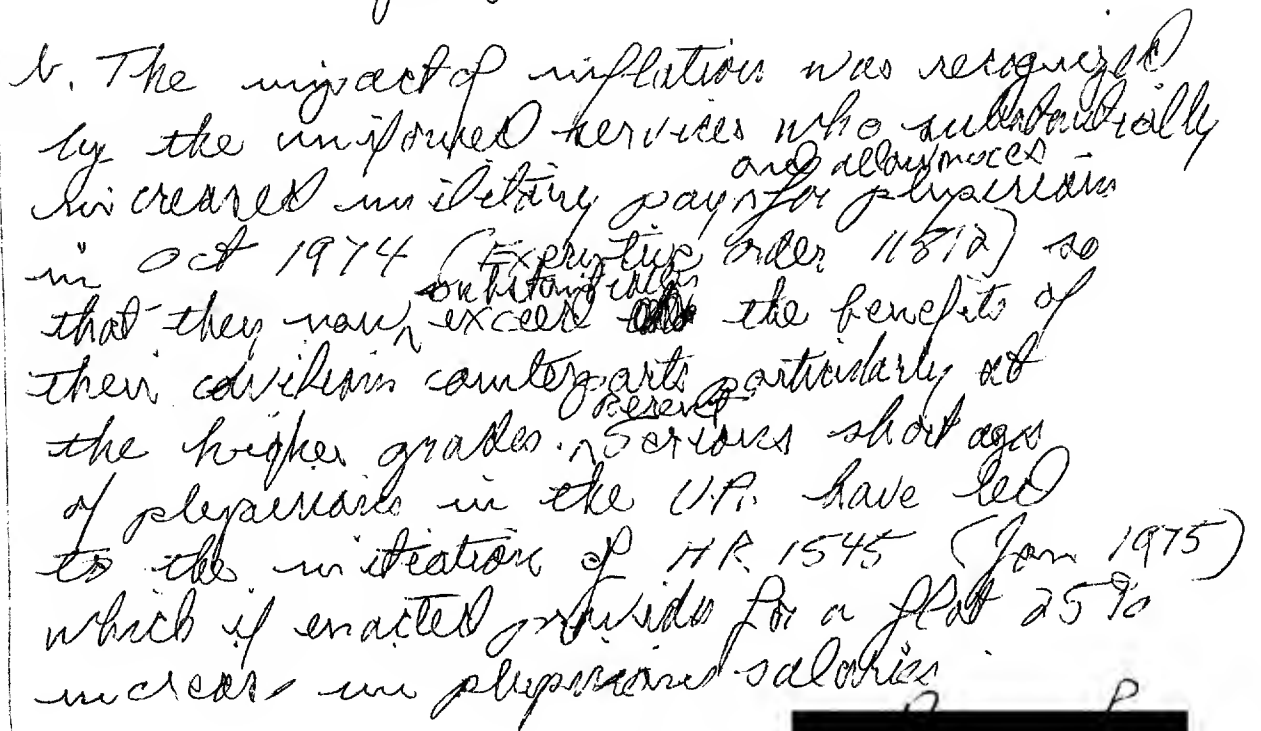 b. The impact of inflation was recognized
by the uniformed services who substantially
increased military pay and allowances for physicians
in Oct 1974 (Executive order 11812) so
that they now substantially exceed the benefits of
their civilian counterparts particularly at
the higher grades. Serious shortages
of physicians in the have led
to the initiation of HR. 1545 (Jan 1975)
which if enacted provides for a flat 25%
increase in physicians salaries